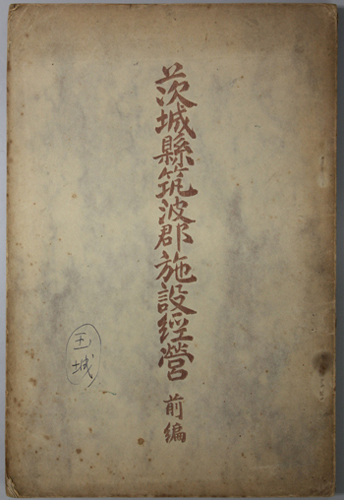 茨城縣筑波郡施設經營
前編
玉城